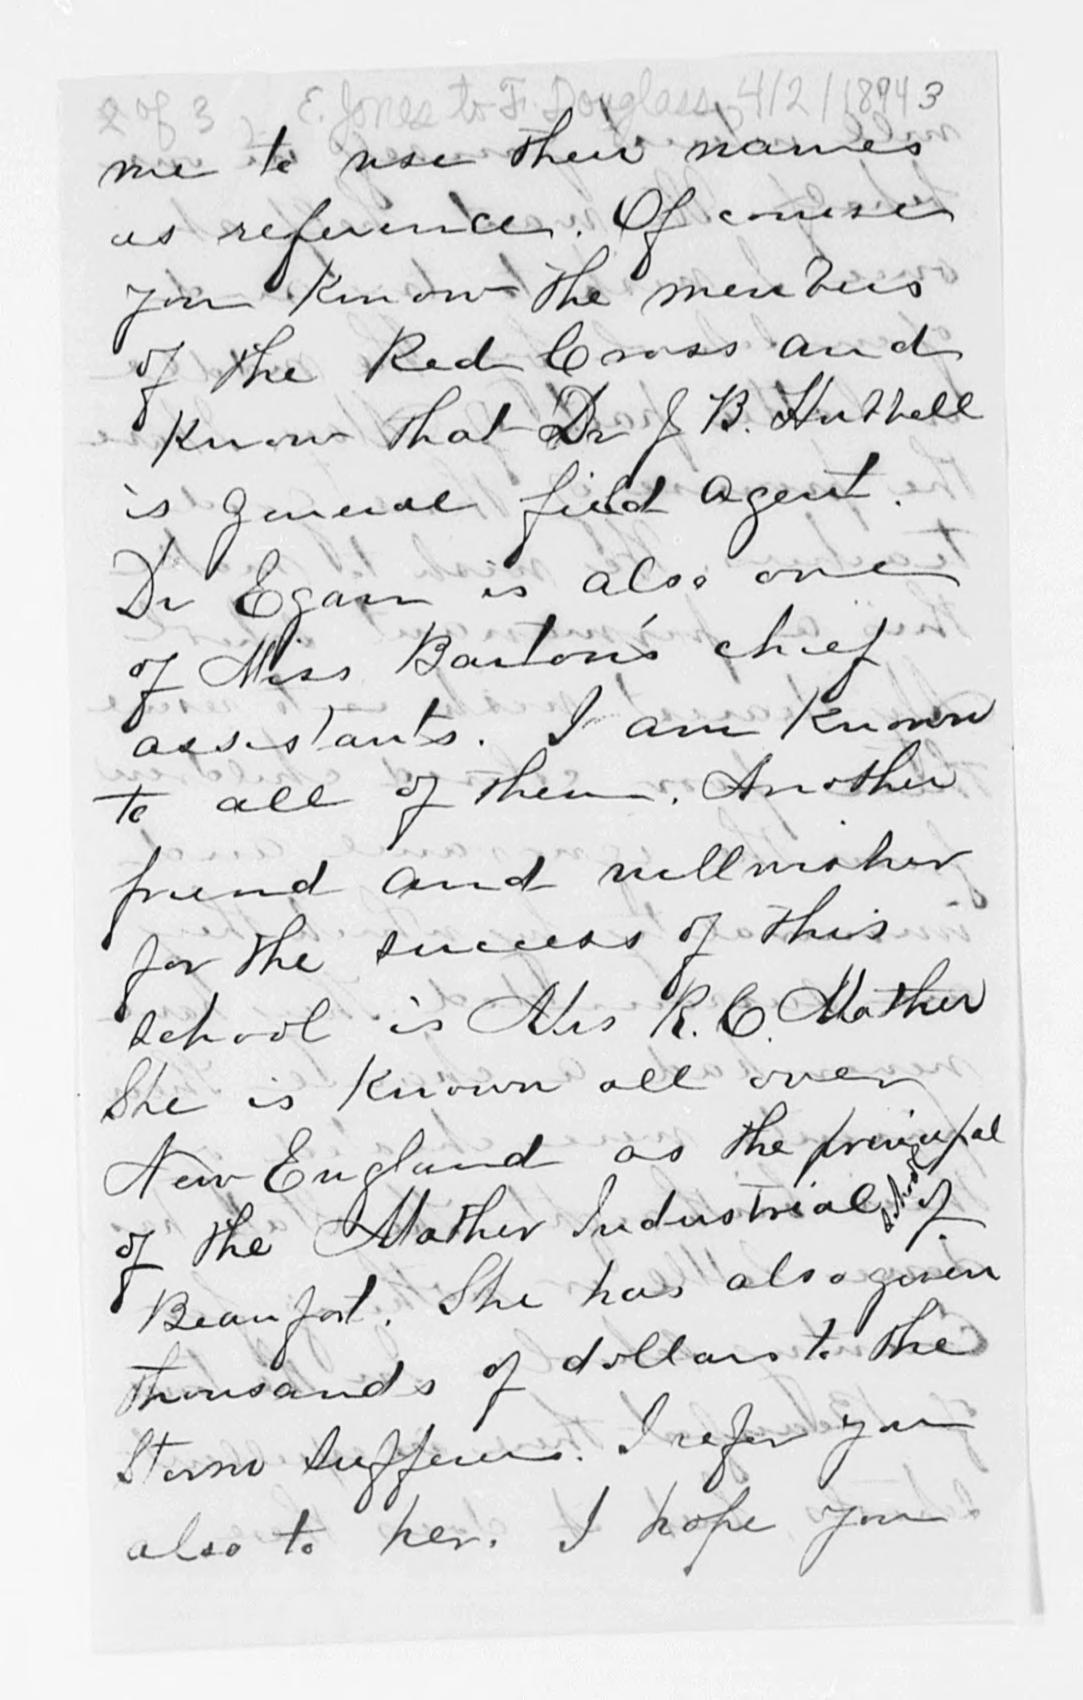 2 of 3, E. Jones to F. Douglass, 4/2/1894 3
me to use their names
as reference. Of course
you know the members
of the Red Cross and
know that Dr J B. Hubbell
is general field agent.
Dr Egan is also one
of Miss Barton's chief
assistants. I am known
to all of them. Another
friend and wellwisher
for the success of this
school is Mrs R. C. Mather
She is known all over
New England as the principal
of the Mather Industrial school of
Beaufort. She has also given
thousands of dollars to the
Storm sufferers. I refer you
also to her. I hope you